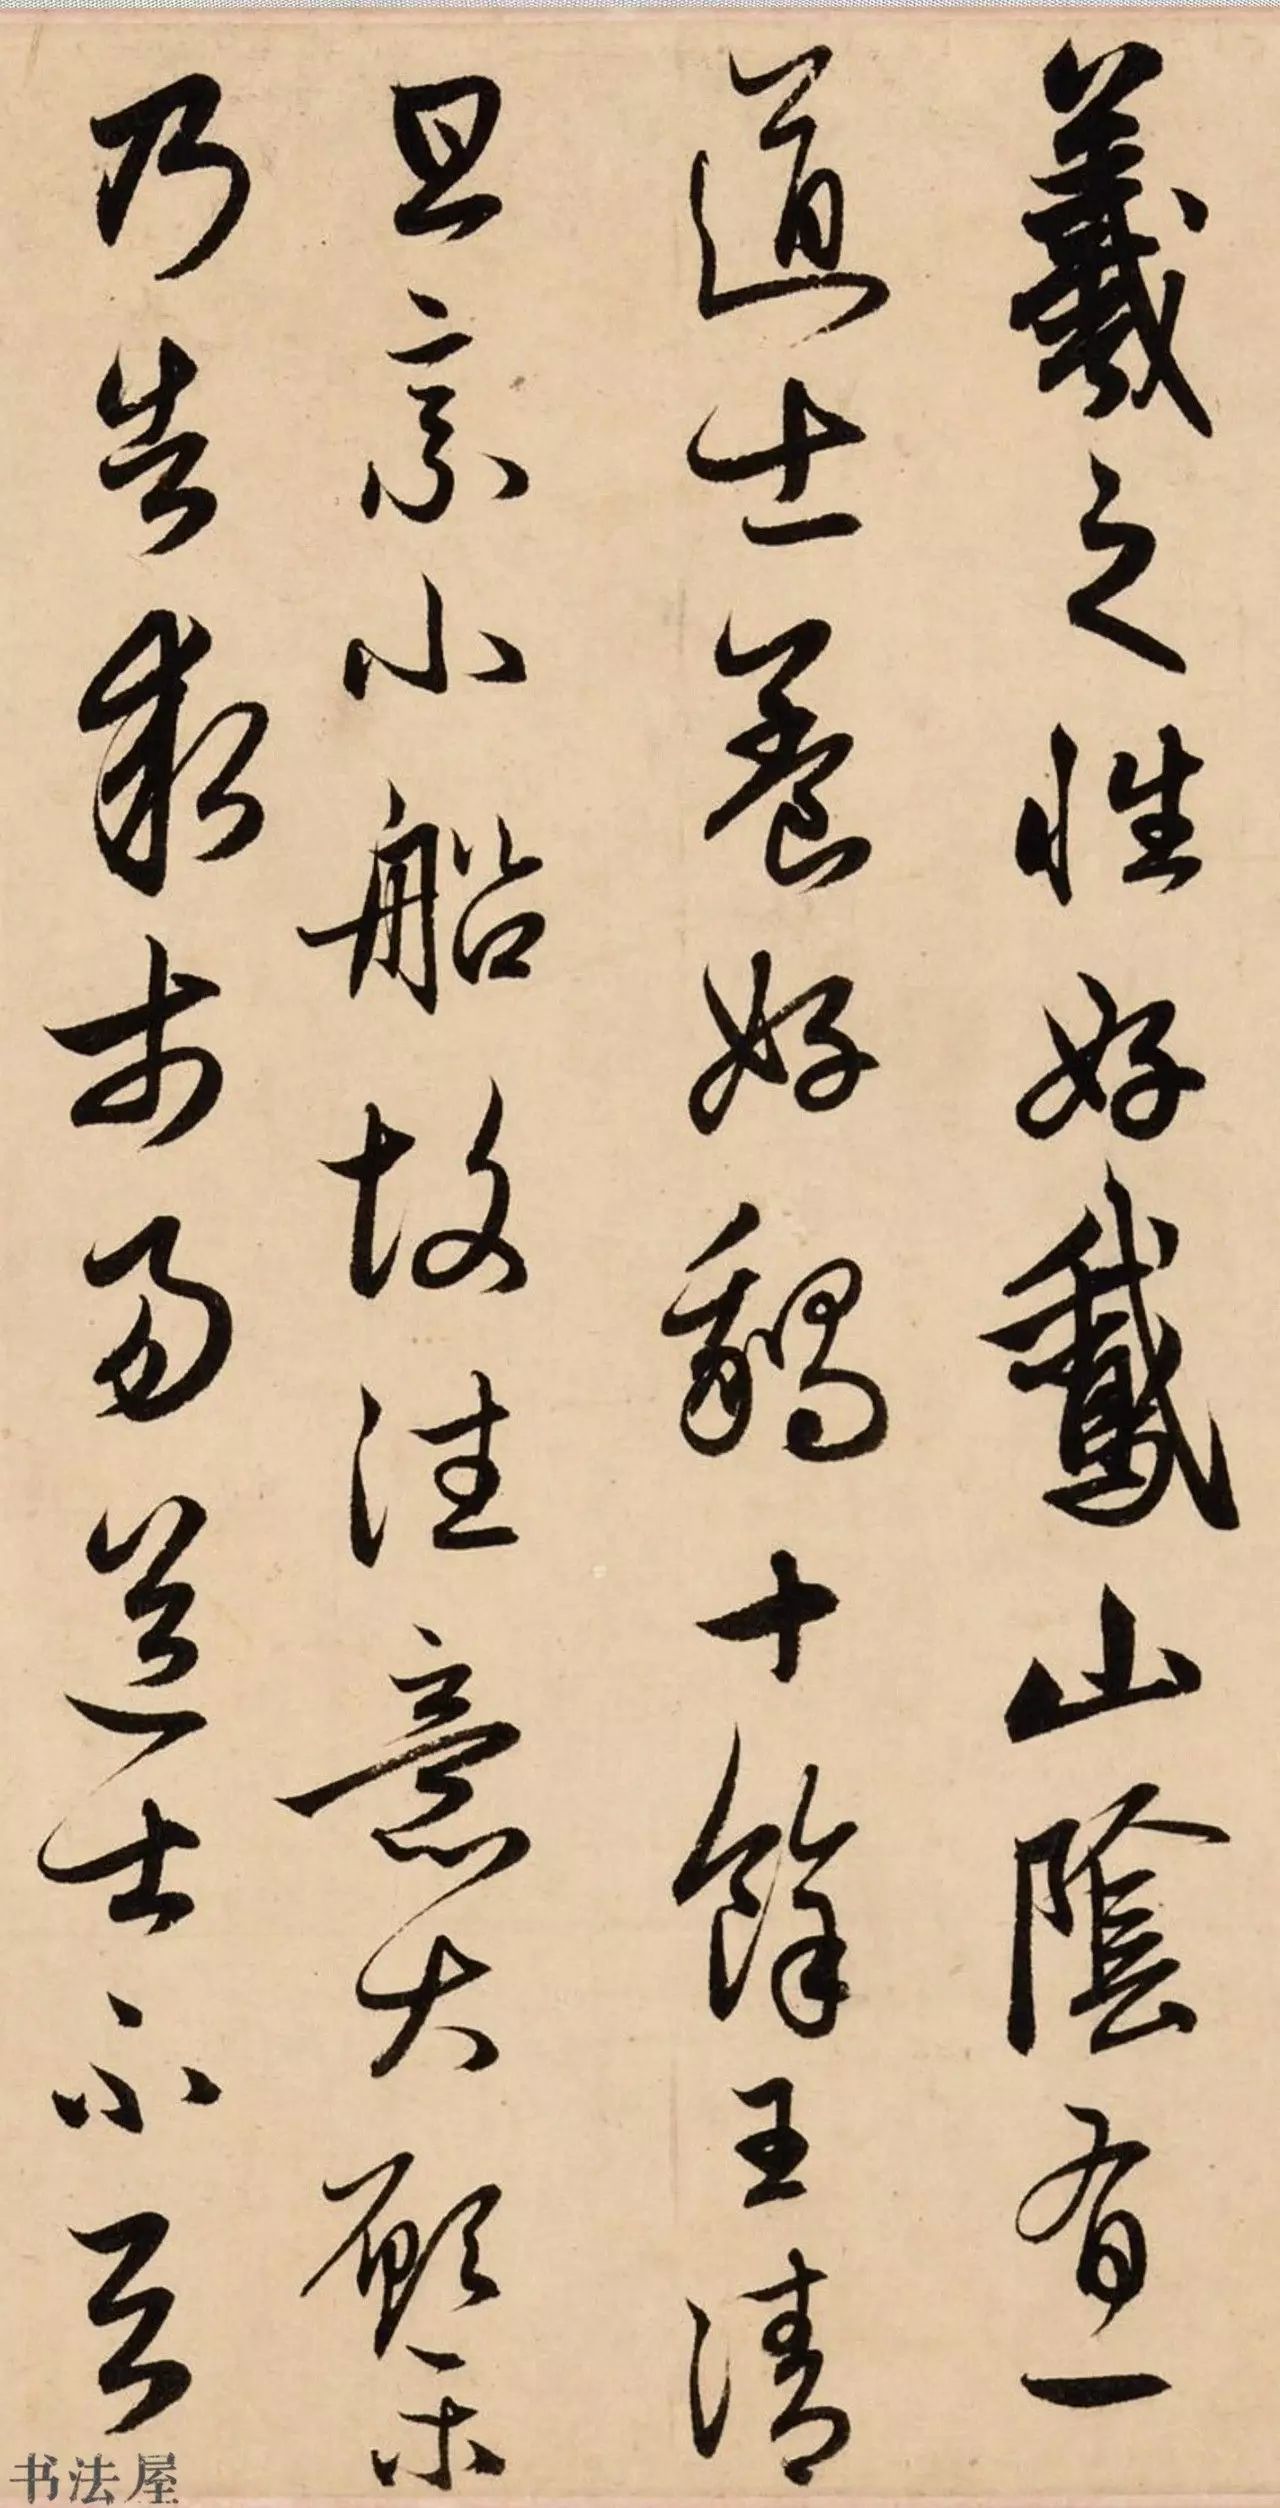 羲之性好鵞山陰有一
道士養好鵝十餘王清
旦乘小船故往意大願樂
乃告求市易道士不与
书法屋